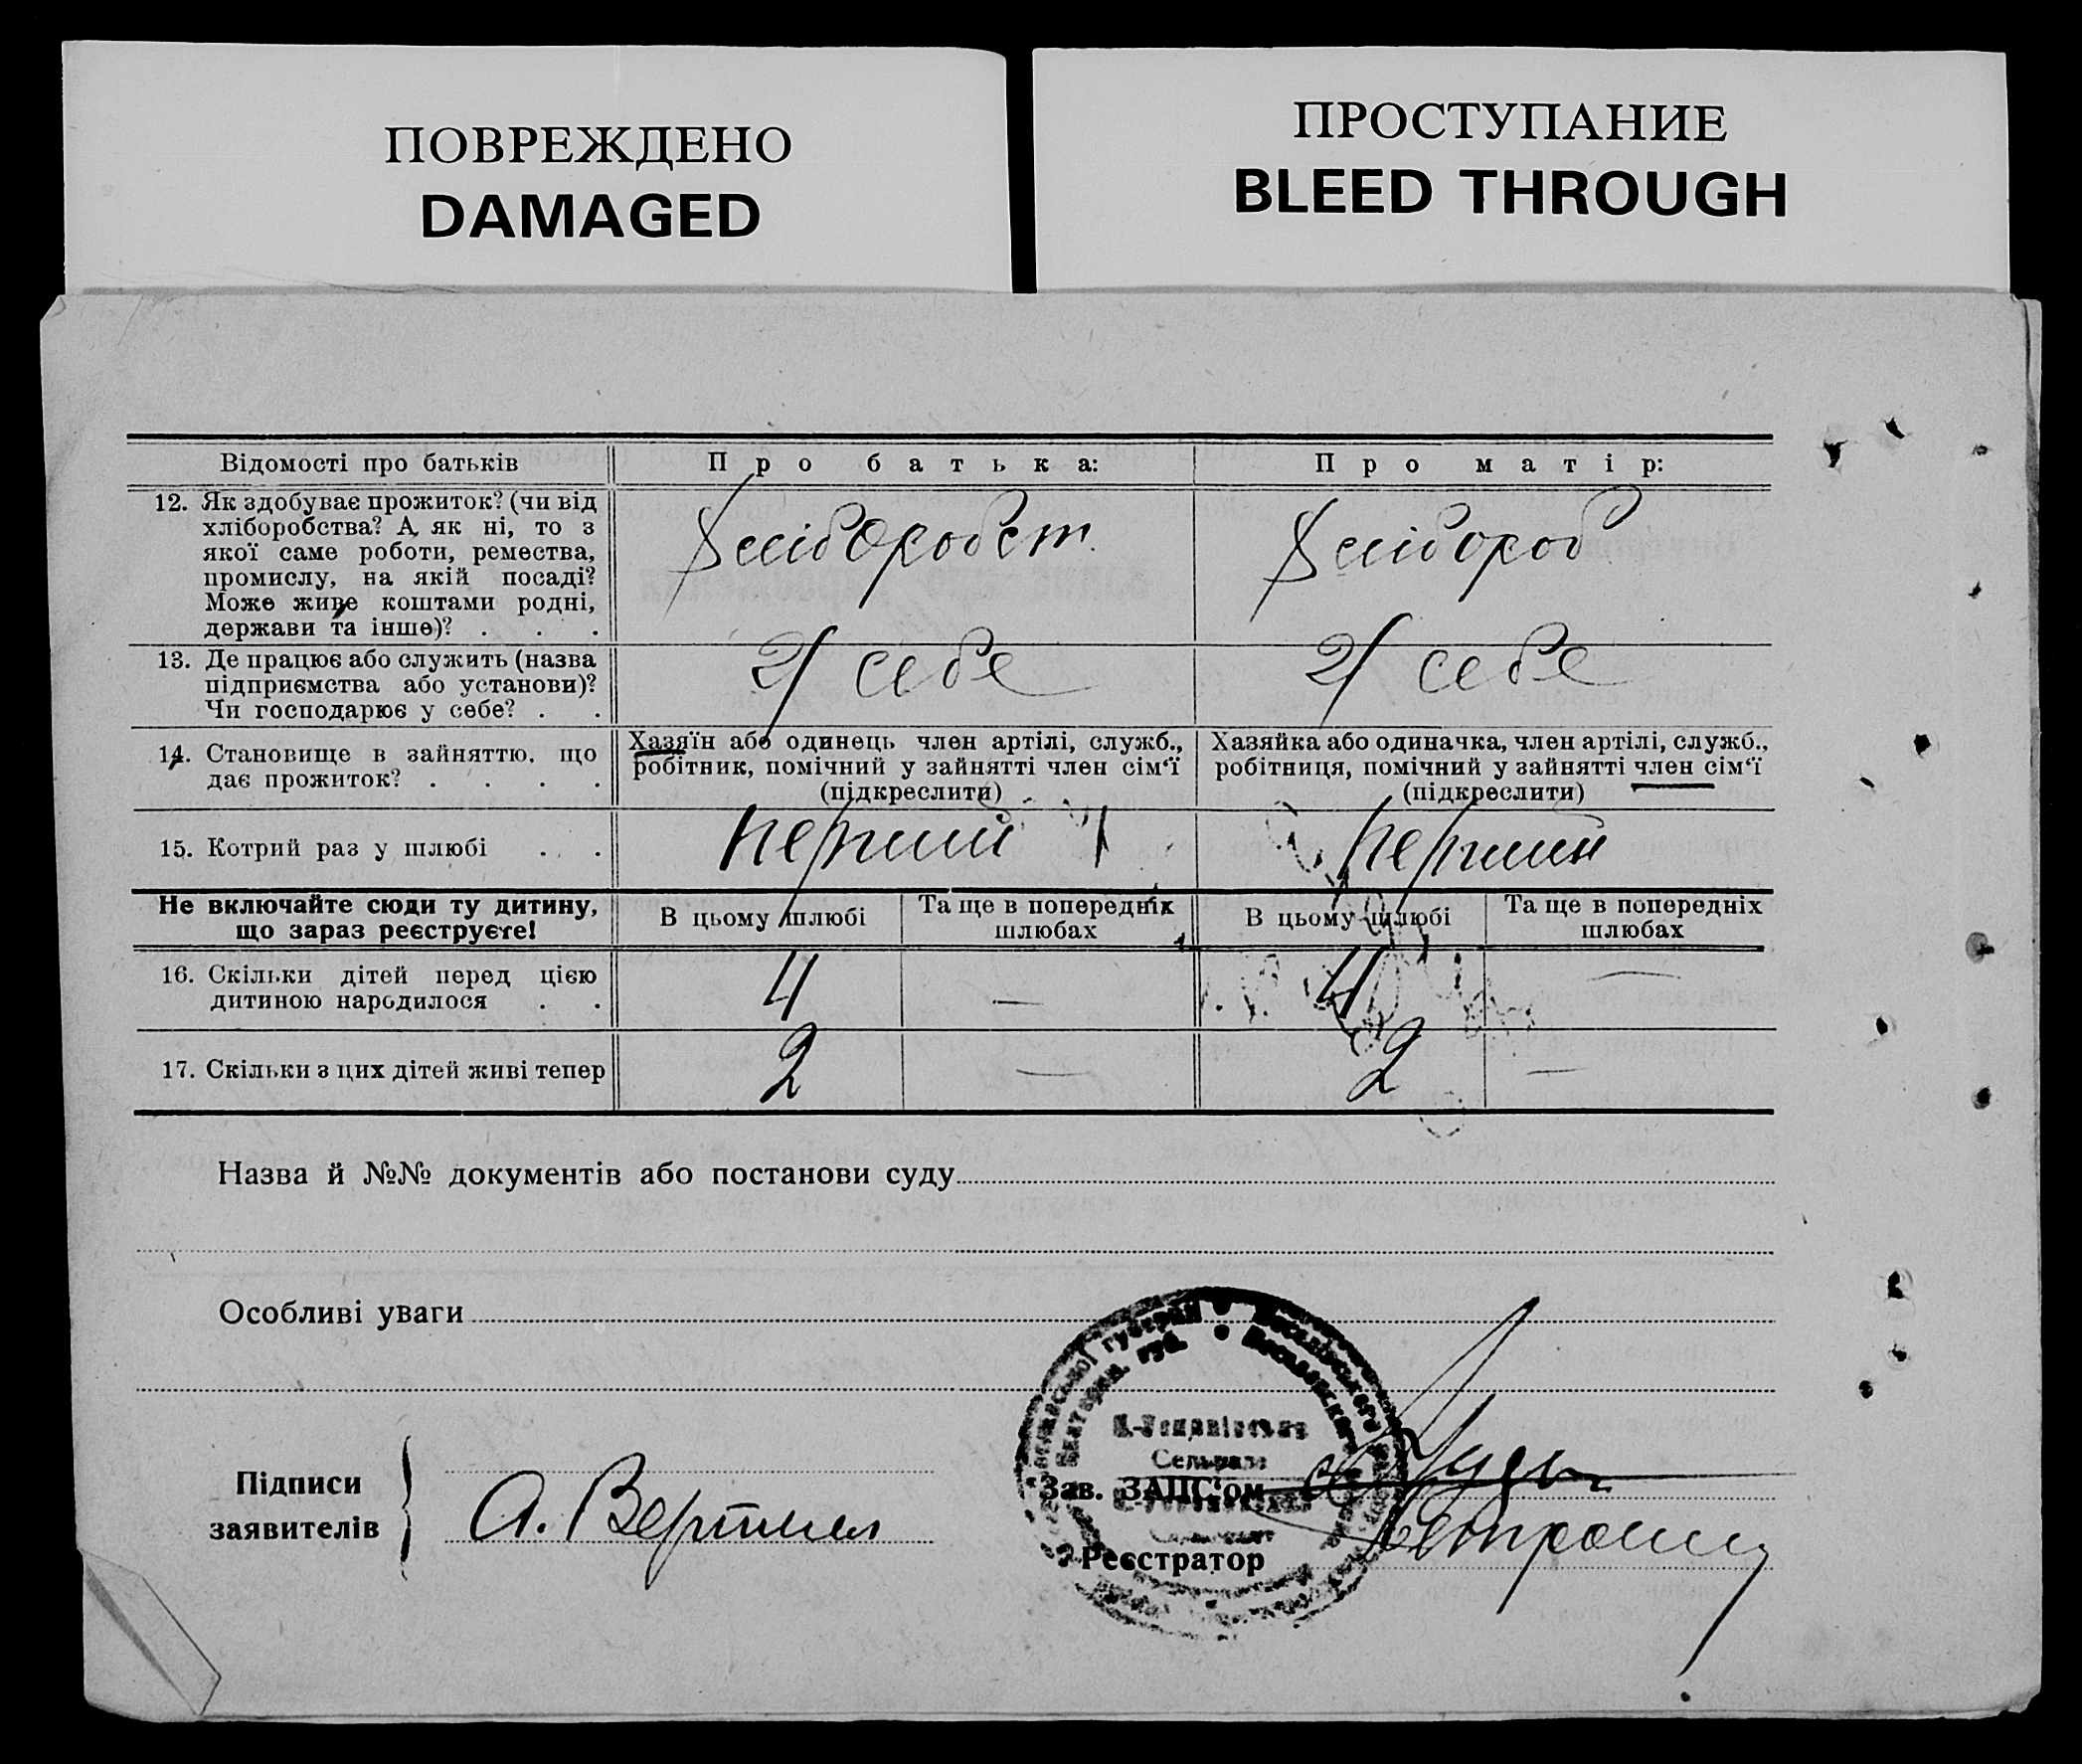 ПОВРЕЖДЕНО
DAMAGED
ПРОСТУПАНИЕ
BLEED THROUGH
Відомості про батьків
Про батька:
Про матір:
12. Як здобуває прожиток? (чи від
хліборобства? А як ні, то з
якої саме роботи, ремества,
промислу, на якій посаді?
Може живе коштами родні,
держави та інше)? . . .
Хліборобст.
Хлібороб
13. Де працює або служить (назва
підприємства або установи)?
Чи господарює у себе? . .
У себе
У себе
14. Становище в зайняттю, що
дає прожиток? . . . .
Хазяїн або одинець член артілі, служб.,
робітник, помічний у зайнятті член сім'ї
(підкреслити)
Хазяйка або одиначка, член артілі, служб.,
робітниця, помічний у зайнятті член сім'ї
(підкреслити)
15. Котрий раз у шлюбі . . .
первий
первий
Не включайте сюди ту дитину,
що зараз реєструєте!
В цьому шлюбі
Та ще в попередніх
шлюбах
В цьому шлюбі
Та ще в попередніх
шлюбах
16. Скільки дітей перед цією
дитиною народилося . .
4
—
4
—
17. Скільки з цих дітей живі тепер
2
—
2
—
Назва й №№ документів або постанови суду
Особливі уваги
Підписи
заявителів
А. Вертил
губерній
губ.
Сельрада
Зав. ЗАПС'ом
Реєстратор